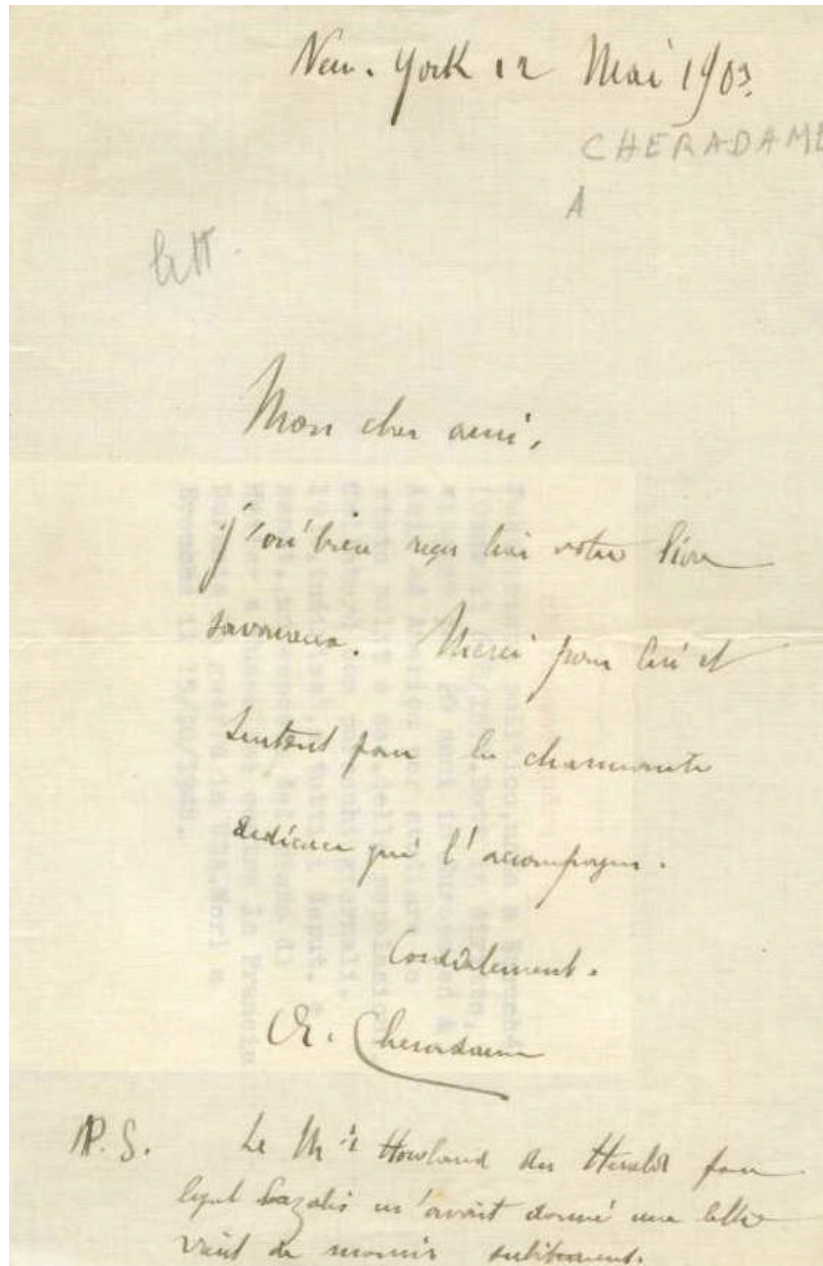 New-York 12 Mai 1903.
CHERADAME
A
Mon cher ami,
j'ai bien reçu hier votre livre
savoureux. Merci pour lui et
surtout pour la charmante
dédicace qui l'accompagne.
Cordialement.
A. Cheradame
P.S. Le Mr Howland du Herald pour
lequel Cazalis m'avait donné une lettre
vient de mourir subitement.